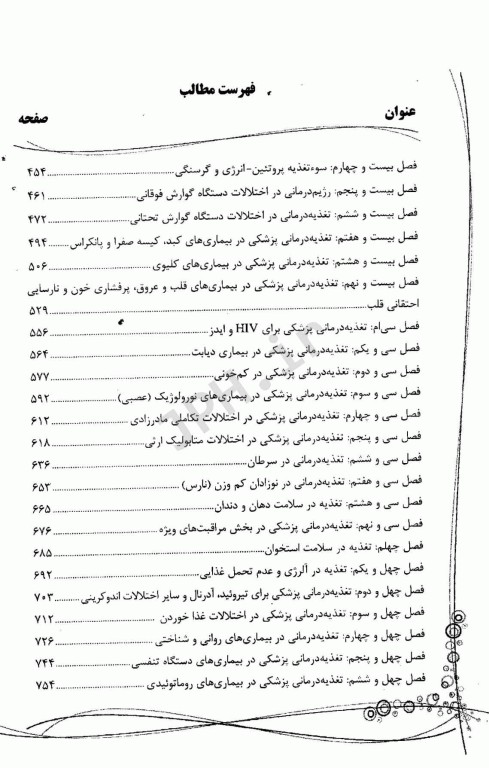 فهرست مطالب
عنوان
صفحه
فصل بیست و چهارم: سوءتغذیه پروتئین-انرژی و گرسنگی ........ ۴۵۴
فصل بیست و پنجم: رژیم‌درمانی در اختلالات دستگاه گوارش فوقانی ........ ۴۶۱
فصل بیست و ششم: تغذیه‌درمانی در اختلالات دستگاه گوارش تحتانی ........ ۴۷۲
فصل بیست و هفتم: تغذیه‌درمانی پزشکی در بیماری‌های کبد، کیسه صفرا و پانکراس ........ ۴۹۴
فصل بیست و هشتم: تغذیه‌درمانی پزشکی در بیماری‌های کلیوی ........ ۵۰۶
فصل بیست و نهم: تغذیه‌درمانی پزشکی در بیماری‌های قلب و عروق، پرفشاری خون و نارسایی
احتقانی قلب ........ ۵۲۹
فصل سی‌ام: تغذیه‌درمانی پزشکی برای HIV و ایدز ........ ۵۵۶
فصل سی و یکم: تغذیه‌درمانی پزشکی در بیماری دیابت ........ ۵۶۴
فصل سی و دوم: تغذیه‌درمانی پزشکی در کم‌خونی ........ ۵۷۷
فصل سی و سوم: تغذیه‌درمانی پزشکی در بیماری‌های نورولوژیک (عصبی) ........ ۵۹۲
فصل سی و چهارم: تغذیه‌درمانی پزشکی در اختلالات تکاملی مادرزادی ........ ۶۱۲
فصل سی و پنجم: تغذیه‌درمانی پزشکی در اختلالات متابولیک ارثی ........ ۶۱۸
فصل سی و ششم: تغذیه‌درمانی در سرطان ........ ۶۳۶
فصل سی و هفتم: تغذیه‌درمانی در نوزادان کم وزن (نارس) ........ ۶۵۳
فصل سی و هشتم: تغذیه در سلامت دهان و دندان ........ ۶۶۵
فصل سی و نهم: تغذیه‌درمانی پزشکی در بخش مراقبت‌های ویژه ........ ۶۷۶
فصل چهلم: تغذیه در سلامت استخوان ........ ۶۸۵
فصل چهل و یکم: تغذیه در آلرژی و عدم تحمل غذایی ........ ۶۹۲
فصل چهل و دوم: تغذیه‌درمانی پزشکی برای تیروئید، آدرنال و سایر اختلالات اندوکرینی ........ ۷۰۳
فصل چهل و سوم: تغذیه‌درمانی پزشکی در اختلالات غذا خوردن ........ ۷۱۲
فصل چهل و چهارم: تغذیه‌درمانی پزشکی در بیماری‌های روانی و شناختی ........ ۷۲۶
فصل چهل و پنجم: تغذیه‌درمانی پزشکی در بیماری‌های دستگاه تنفسی ........ ۷۴۴
فصل چهل و ششم: تغذیه‌درمانی پزشکی در بیماری‌های روماتوئیدی ........ ۷۵۴